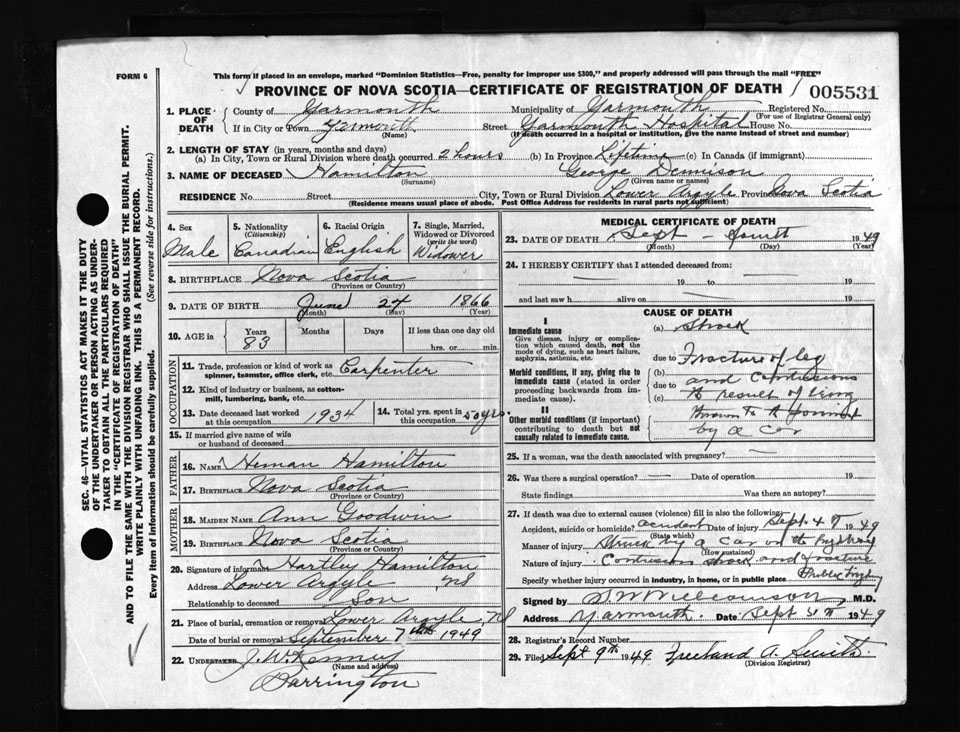 FORM 6
This form if placed in an envelope, marked "Dominion Statistics—Free, penalty for improper use $300," and properly addressed will pass through the mail "FREE"
PROVINCE OF NOVA SCOTIA—CERTIFICATE OF REGISTRATION OF DEATH
005531
1. PLACE OF DEATH
County of Yarmouth Municipality of Yarmouth Registered No.
(For use of Registrar General only)
If in City or Town Yarmouth Street Yarmouth Hospital House No.
(If death occurred in a hospital or institution, give the name instead of street and number)
2. LENGTH OF STAY (in years, months and days)
(a) In City, Town or Rural Division where death occurred 2 hours (b) In Province Lifetime (c) In Canada (if immigrant)
3. NAME OF DECEASED Hamilton George Dennison
(Surname) (Given name or names)
RESIDENCE No. Street City, Town or Rural Division Lower Argyle Province Nova Scotia
(Residence means usual place of abode. Post Office Address for residents in rural parts not sufficient)
4. Sex Male
5. Nationality (Citizenship) Canadian
6. Racial Origin English
7. Single, Married, Widowed or Divorced (write the word) Widower
8. BIRTHPLACE Nova Scotia
(Province or Country)
9. DATE OF BIRTH June 24 1866
(Month) (Day) (Year)
10. AGE in Years Months Days If less than one day old
83 hrs. or min.
OCCUPATION
11. Trade, profession or kind of work as spinner, teamster, office clerk, etc. Carpenter
12. Kind of industry or business, as cotton-mill, lumbering, bank, etc.
13. Date deceased last worked at this occupation 1934
14. Total yrs. spent in this occupation 50 yrs.
15. If married give name of wife or husband of deceased
FATHER
16. NAME Heman Hamilton
17. BIRTHPLACE Nova Scotia
(Province or Country)
MOTHER
18. MAIDEN NAME Ann Goodwin
19. BIRTHPLACE Nova Scotia
(Province or Country)
20. Signature of informant Hartley Hamilton
Address Lower Argyle NS
Relationship to deceased Son
21. Place of burial, cremation or removal Lower Argyle, NS
Date of burial or removal September 7th 1949
22. UNDERTAKER J. W. Kenney
(Name and address)
Barrington
MEDICAL CERTIFICATE OF DEATH
23. DATE OF DEATH Sept – Fourth 1949
(Month) (Day) (Year)
24. I HEREBY CERTIFY that I attended deceased from:
19 to 19
and last saw h alive on 19
CAUSE OF DEATH
I
Immediate cause
Give disease, injury or complication which caused death, not the mode of dying, such as heart failure, asphyxia, asthenia, etc.
(a) Shock
due to Fracture of leg
Morbid conditions, if any, giving rise to immediate cause (stated in order proceeding backwards from immediate cause).
(b) and contusions
due to
(c) result of being
II
Other morbid conditions (if important) contributing to death but not causally related to immediate cause.
thrown to the
by a car
25. If a woman, was the death associated with pregnancy?
26. Was there a surgical operation? Date of operation 19
State findings Was there an autopsy?
27. If death was due to external causes (violence) fill in also the following:
Accident, suicide or homicide? accident Date of injury Sept. 4th 1949
(State which)
Manner of injury Struck by a car on the highway
(How sustained)
Nature of injury Contusions shock and fracture
Specify whether injury occurred in industry, in home, or in public place Public highway
Signed by M.D.
Address Yarmouth Date Sept 1949
28. Registrar's Record Number
29. Filed Sept 9th 1949 Freeland A. Smith
(Division Registrar)
SEC. 46—VITAL STATISTICS ACT MAKES IT THE DUTY
OF THE UNDERTAKER OR PERSON ACTING AS UNDER-
TAKER TO OBTAIN ALL THE PARTICULARS REQUIRED
IN THE "CERTIFICATE OF REGISTRATION OF DEATH"
AND TO FILE THE SAME WITH THE DIVISION REGISTRAR WHO SHALL ISSUE THE BURIAL PERMIT.
WRITE PLAINLY WITH UNFADING INK. THIS IS A PERMANENT RECORD.
Every item of information should be carefully supplied. (See reverse side for instructions.)